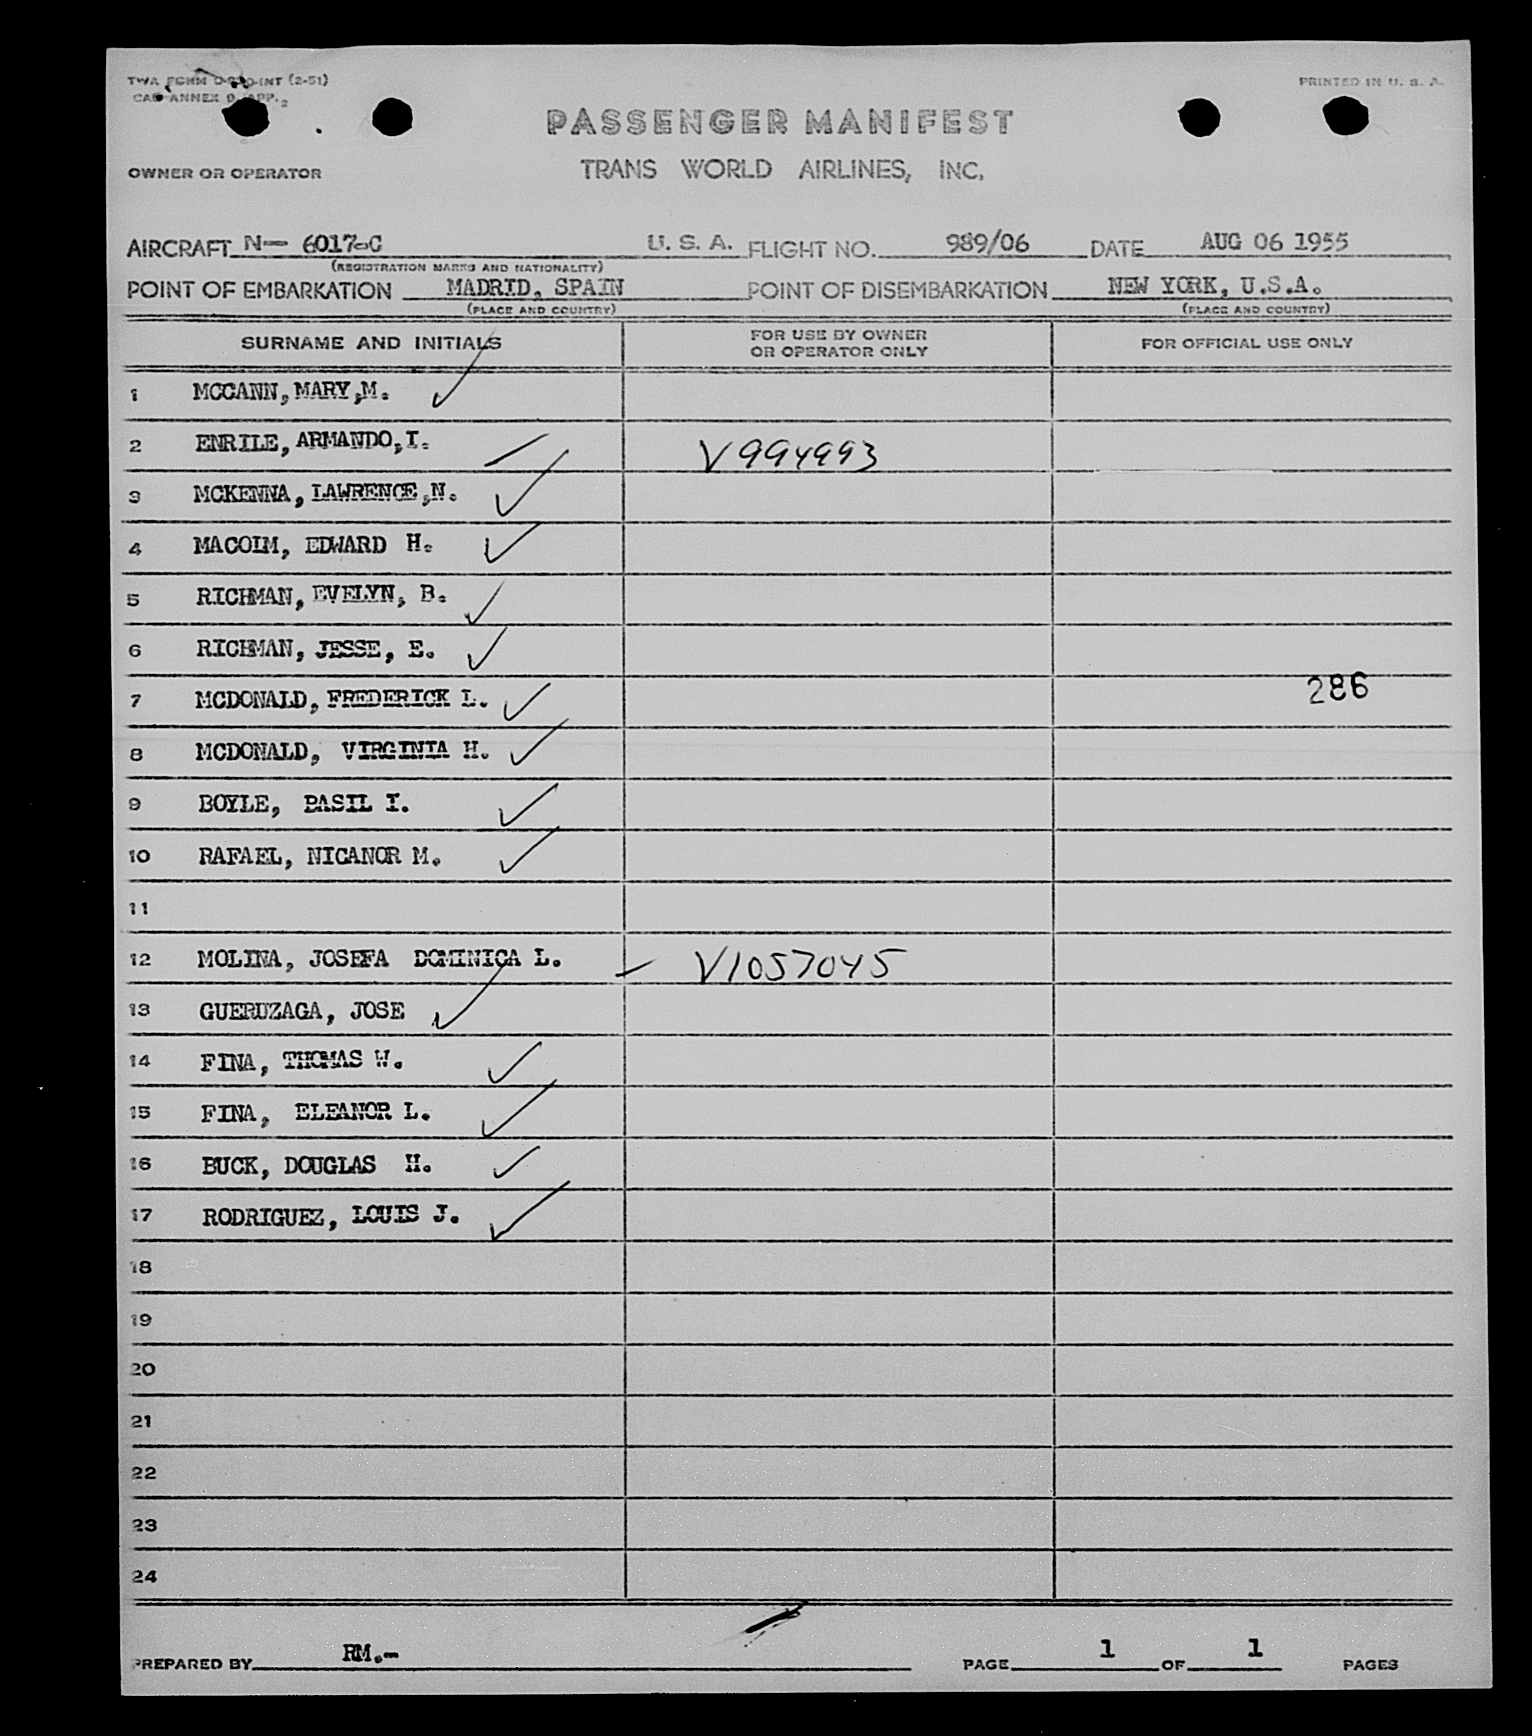 TWA FORM O-820-INT (2-51)
PRINTED IN U. S. A.
CAB ANNEX 9, APP. 2
PASSENGER MANIFEST
OWNER OR OPERATOR
TRANS WORLD AIRLINES, INC.
AIRCRAFT N- 6017-C U. S. A. FLIGHT NO. 989/06 DATE AUG 06 1955
(REGISTRATION MARKS AND NATIONALITY)
POINT OF EMBARKATION MADRID, SPAIN POINT OF DISEMBARKATION NEW YORK, U.S.A.
(PLACE AND COUNTRY) (PLACE AND COUNTRY)
SURNAME AND INITIALS FOR USE BY OWNER OR OPERATOR ONLY FOR OFFICIAL USE ONLY
1 MCCANN, MARY,M.
2 ENRILE, ARMANDO,I. V994993
3 MCKENNA, LAWRENCE,N.
4 MACOIM, EDWARD H.
5 RICHMAN, EVELYN, B.
6 RICHMAN, JESSE, E.
7 MCDONALD, FREDERICK L. 286
8 MCDONALD, VIRGINIA H.
9 BOYLE, BASIL I.
10 RAFAEL, NICANOR M.
11
12 MOLINA, JOSEFA DOMINICA L. V1057045
13 GUERUZAGA, JOSE
14 FINA, THOMAS W.
15 FINA, ELEANOR L.
16 BUCK, DOUGLAS H.
17 RODRIGUEZ, LOUIS J.
18
19
20
21
22
23
24
PREPARED BY RM.- PAGE 1 OF 1 PAGES